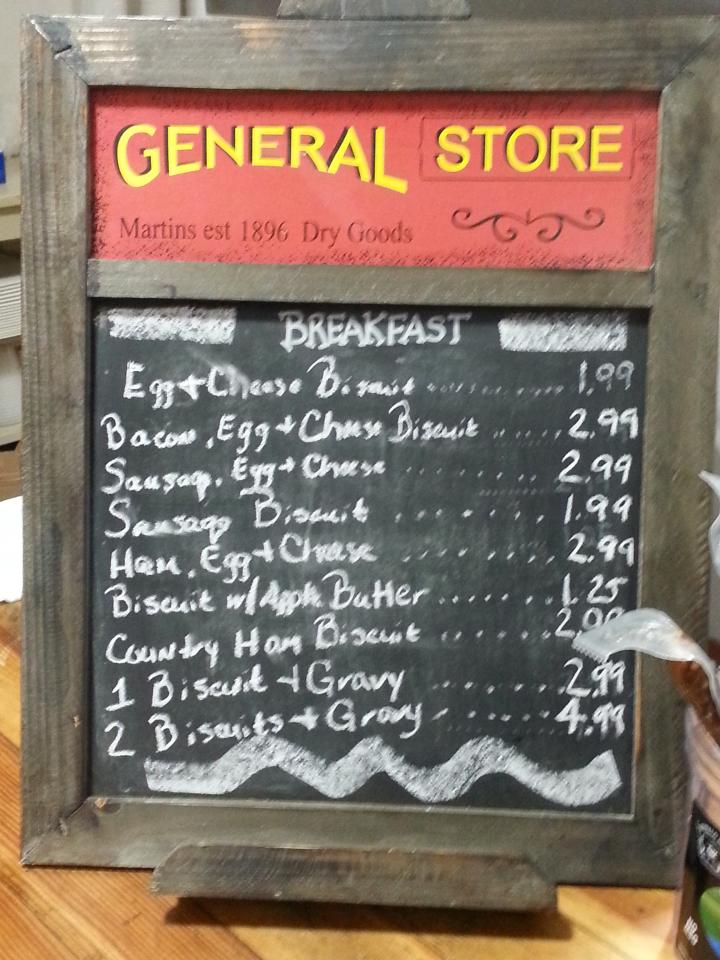 GENERAL STORE
Martins est 1896 Dry Goods
BREAKFAST
Egg + Cheese Biscuit ........... 1.99
Bacon, Egg + Cheese Biscuit ...... 2.99
Sausage, Egg + Cheese ........ 2.99
Sausage Biscuit ........ 1.99
Ham, Egg + Cheese ........ 2.99
Biscuit w/Apple Butter ...... 1.25
Country Ham Biscuit ...... 2.99
1 Biscuit + Gravy ...... 2.99
2 Biscuits + Gravy ...... 4.99